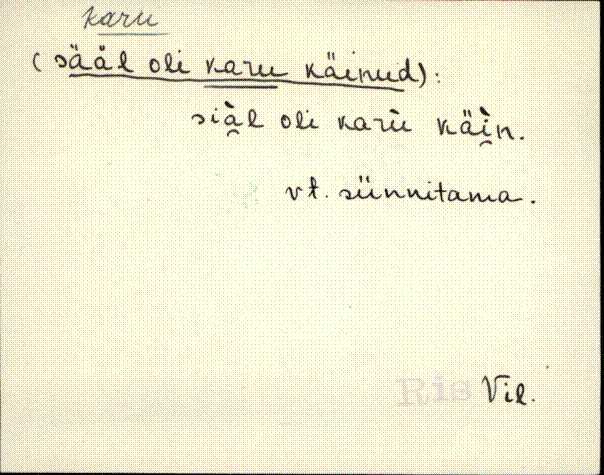 karu
(sääl oli karu käinud):
sial oli karu käin.
vt. sünnitama.
Ris Vil.